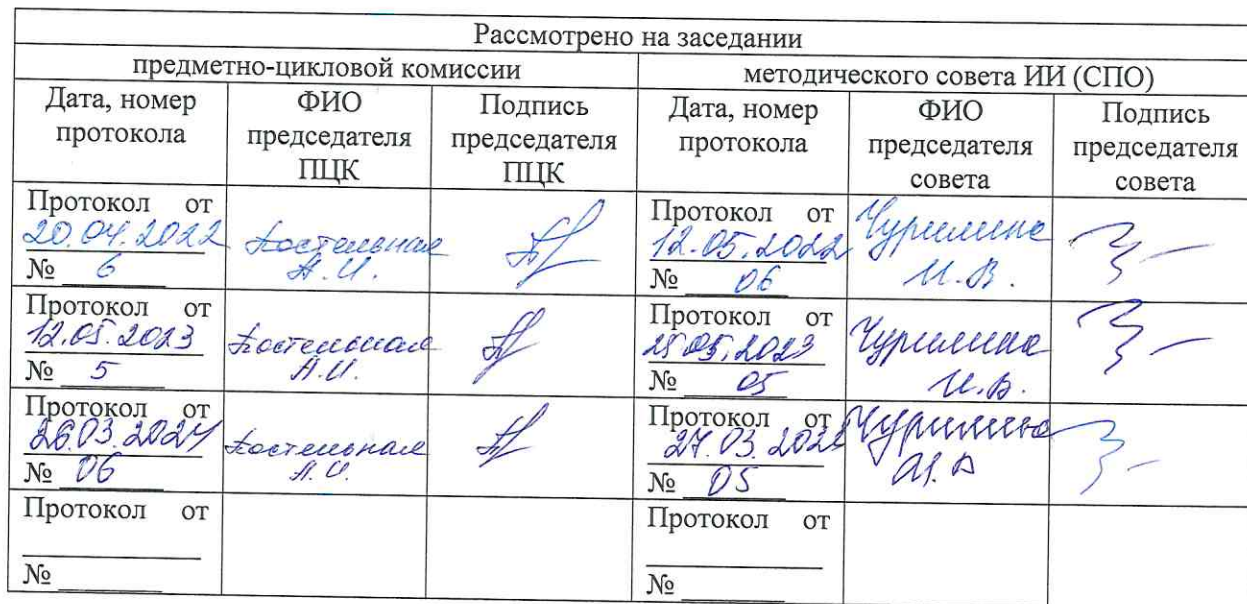 Рассмотрено на заседании
предметно-цикловой комиссии
методического совета ИИ (СПО)
Дата, номер протокола
ФИО председателя ПЦК
Подпись председателя ПЦК
Дата, номер протокола
ФИО председателя совета
Подпись председателя совета
Протокол от
20.04.2022
№ 6
Костельная
А.И.
Протокол от
12.05.2022
№ 06
Чурилина
И.В.
Протокол от
12.05.2023
№ 5
Костельная
А.И.
Протокол от
25.05.2023
№ 05
Чурилина
И.В.
Протокол от
26.03.2024
№ 06
Костельная
А.И.
Протокол от
27.03.
№ 05
Чурилина
И.В
Протокол от
№
Протокол от
№